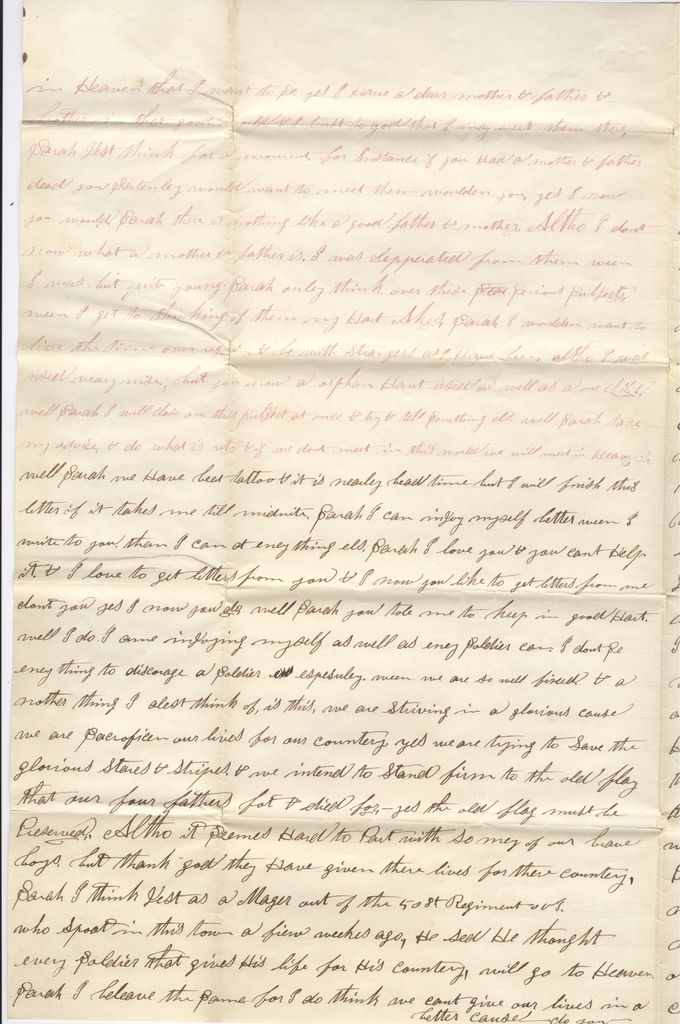 in Heaven that I want to Se yes I Have a dear mother & father &
in that good & I trust to god that I may meet them there,
Sarah Jest think for a moment for Instance if you Had a mother & father
dead you Sertenley would want to meet them woulden you, yes I now
you would, Sarah there is nothing like a good father & mother, Altho I dont
now what a mother & father is, I was Sepperated from them ween
I was but young Sarah onley think over these Serious Subjects,
ween I get to thinking of them my Hart Akes, Sarah I woulden want to
live the time over again & be with Strangers as I Have been altho I was
used veary nise, but you now a orphan Hant used as well as a one Child,
well Sarah I will close on this Subject at once & try & tell Somthing els. well Sarah take
my advice, & do what is rite & if we dont meet in this world we will meet in Heaven,
well Sarah we Have beet tattoo & it is nearley bead time but I will finish this
letter if it takes me till midnite, Sarah I can injoy myself better ween I
write to you. than I can at eney thing els. Sarah I love you & you cant Help
it. & I love to get letters from you & I now you like to get letters from me
dont you yes I now you do well Sarah you tole me to keep in good Hart.
well I do I ame injoying myself as well as eney Soldier can. I dont Se
eney thing to discorage a Soldier. espesuley. ween we are so well fixed. & a
nother thing I alest think of, is this, we are Striving in a glorious cause
we are Sacroficen our lives for our countery, yes we are trying to Save the
glorious Stares & Stripes & we intend to Stand firm to the old flag
that our four fathers fot & died for, yes the old flag must be
Preserved, Altho it Seemes Hard to Part with so meny of our brave
boys. but thank god they Have given there lives for there countery,
Sarah I think Jest as a Mager out of the 50st Regiment
who Spoat in this town a fiew weekes ago, He sed He thought
every Soldier that gives His life for His countery, will go to Heaven
Sarah I beleave the Same for I do think we cant give our lives in a
better cause do you